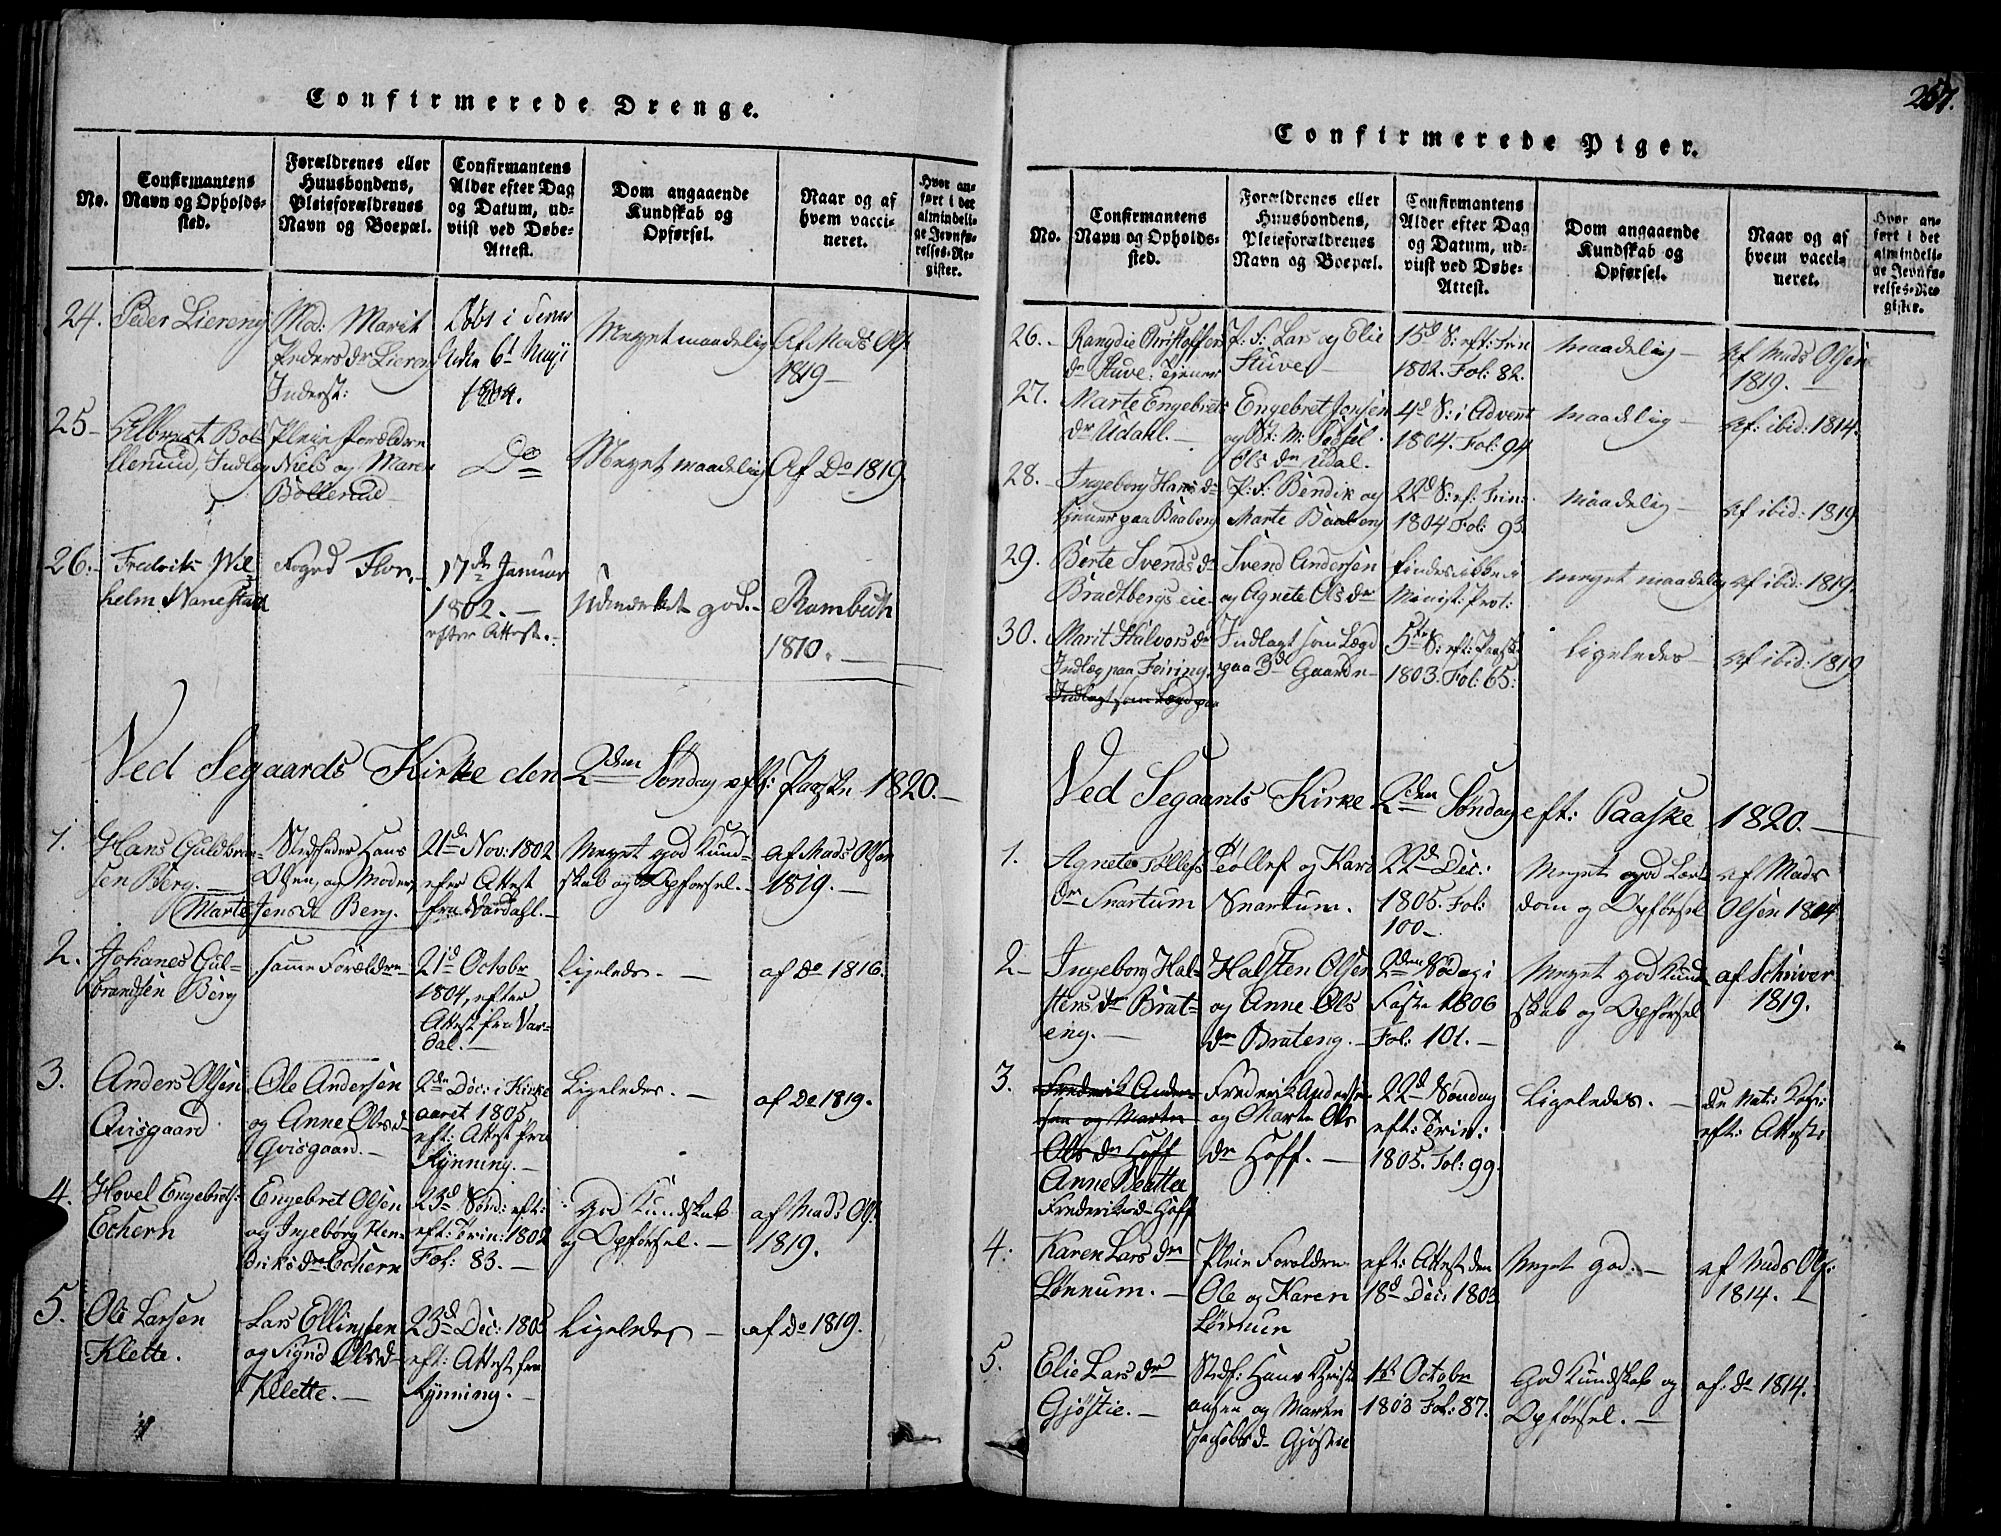 Confirmerede Drenge.
No.
Confirmantens
Navn og Opholds-
sted.
Forældrenes eller
Huusbondens,
Pleieforældrenes
Navn og Boepæl.
Confirmantens
Alder efter Dag
og Datum, ud-
viist ved Døbe-
Attest.
Dom angaaende
Kundskab og
Opførsel.
Naar og af
hvem vacci-
neret.
Hvor an-
ført i det
almindeli-
ge Jevnfø-
relses-Re-
gister.
24.
Peder Liereng
Mod: Marit
Peders dr Liereng
Inderst:
Døbt i
6t Maji
1804.
Meget maadelig
Af Mads Ols:
1819 —
25 -
Bol-
lerud, Indlæg
Pleieforældre
Niels og Maren
Bollerud
Do
Meget maadelig
Af Do 1819.
26. -
Fredrik Wil-
helm Nanestad
Foged Flor. -
17de Januar
1802. —
efter Attest. -
Udmærket god. -
Rambech
1810. —
Ved Segaards Kirke den 2den Søndag eft: Paaske 1820. —
1.
Hans Guldbran-
sen Berg. —
Stedfader Hans
Olsen, og Moder,
Marte Jens dr Berg.
21d Nov: 1802
efter Attest
fra Vardahl. —
Meget god Kund-
skab og Opførsel. -
af Mads Olsen
1819. —
2.
Johanes Gul-
brandsen Berg
samme Forældre
21d Octobr
1804, efter
Attest fra Var-
dal. —
Ligeledes. —
af Do 1816.
3.
Anders Olsen
Qvisgaard
Ole Andersen
og Anne Olsd
Qvisgaard. —
2den Dec: i Kirke
aaret 1805,
eft: Attest fra
Rynning. —
Ligeledes. —
af Do 1819.
4.
Hovel Engebrets:
Echern
Engebret Olsen
og Ingebørg Hen-
driks dr Echern
23d Sønd: eft:
eft: Trin: 1802
Fol: 83. —
God Kundskab
og Opførsel. —
af Mads Ols:
1819.
5.
Ole Larsen
Klette.
Lars Ellingsen
og Sigrid Olsd
Klette. —
23d Dec: 1803
eft: Attest fra
Rynning. —
Ligeledes —
af Do 1819.
257.
Confirmerede Piger.
No.
Confirmantens
Navn og Opholds-
sted.
Forældrenes eller
Huusbondens,
Pleieforældrenes
Navn og Boepæl.
Confirmantens
Alder efter Dag
og Datum, ud-
viist ved Døbe-
Attest.
Dom angaaende
Kundskab og
Opførsel.
Naar og af
hvem vacci-
neret.
Hvor an-
ført i det
almindeli-
ge Jevnfø-
relses-Re-
gister.
26. -
Rangdie Christoffers
dr Stuve. tjener
P: F: Lars og Elie
Stuve —
15d S: eft: Trin
1802. Fol: 82.
maadelig —
af Mads Olsen
1819. —
27.
Marte Engebrets
dr Udahl. —
Engebret Jonsen
og St: M: Sidsel
Ols dr Udal.
4d S: i Advent
1804. Fol: 94
maadelig —
af: ibid: 1814.
28. -
Ingeborg Hans dr
tjener paa Baaberg
P: F: Bendik og
Marte Baaberg
22d S: ef: Trin:
1804 Fol: 93.
maadelig —
af ibid: 1819
29.
Berte Svends dr
Bradtbergs eie
Svend Andersen
og Agnete Ols dr
findes ikke i
Minist: Prot:
meget maadelig
af ibid: 1819.
30.
Marit Halvors dr
Indlæg paa Feiring,
Indlagt som Lægd paa
Indlagt som Lægd
paa Bd Gaarde —
5te S: eft: Paask:
1803. Fol: 65:
Ligeledes —
af ibid: 1819
Ved Segaards Kirke 2den Søndag eft: Paaske 1820. —
1.
Agnete Tollefs
dr Snartum
Tollef og Kari
Snartum.
22d Dec:
1805. Fol:
100 —
Meget god Lær-
dom og Opførsel
af Mads
Olsen 1814
2 -
Ingeborg Hal-
stens dr Brat-
eng. —
Halsten Olsen
og Anne Ols
dr Brateng. —
2den Sødag i
Faste 1806
Fol: 101. —
Meget god Kund
skab og Opførsel
af Schriver
1819.
3.
Frederik Ander-
sen og Marte
Ols dr Hoff
Anne Beathe
Frederiksdr Hoff
Frederik Andersen
og Marte Ols
dr Hoff. —
22d Søndag
eft: Trin:
1805. Fol: 99.
Ligeledes. —
de Nat: Kop:
eft: Attest:
4:
Karen Lars dr
Lønnum. —
Pleie Foreldre
Ole og Karen
Lønnum
eft: Attest den
18d Dec: 1803
Meget god. —
af Mads Ols:
1814. —
5.
Elie Lars dr
Gjøstie. —
Stedf: Hans Christi
ansen og Marte
Jacobsd Gjøstie
1te Octobr
1803 Fol: 87.
God Kundskab og
Opførsel. —
af: Do 1814.